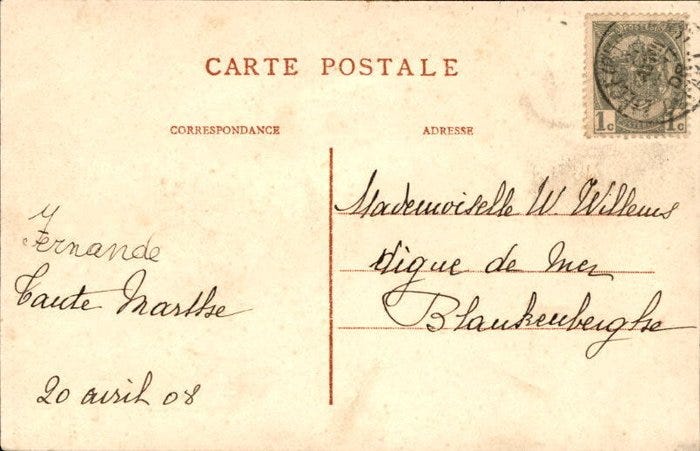 CARTE POSTALE
CORRESPONDANCE
ADRESSE
1c 1c
Fernande
Tante Marthe
20 avril 08
Mademoiselle W. Willems
digue de mer
Blankenberghe